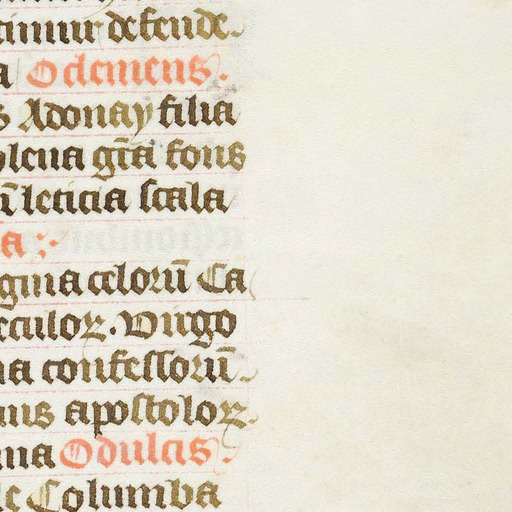 defende.
a O clemens.
s Adonay filia
plena gr̄a fons
ū leticia scala
a :·
gina celorū Ca
eculoꝝ. Virgo
na confessorū.
nis apostoloꝝ.
na O dulcis.
le Columba